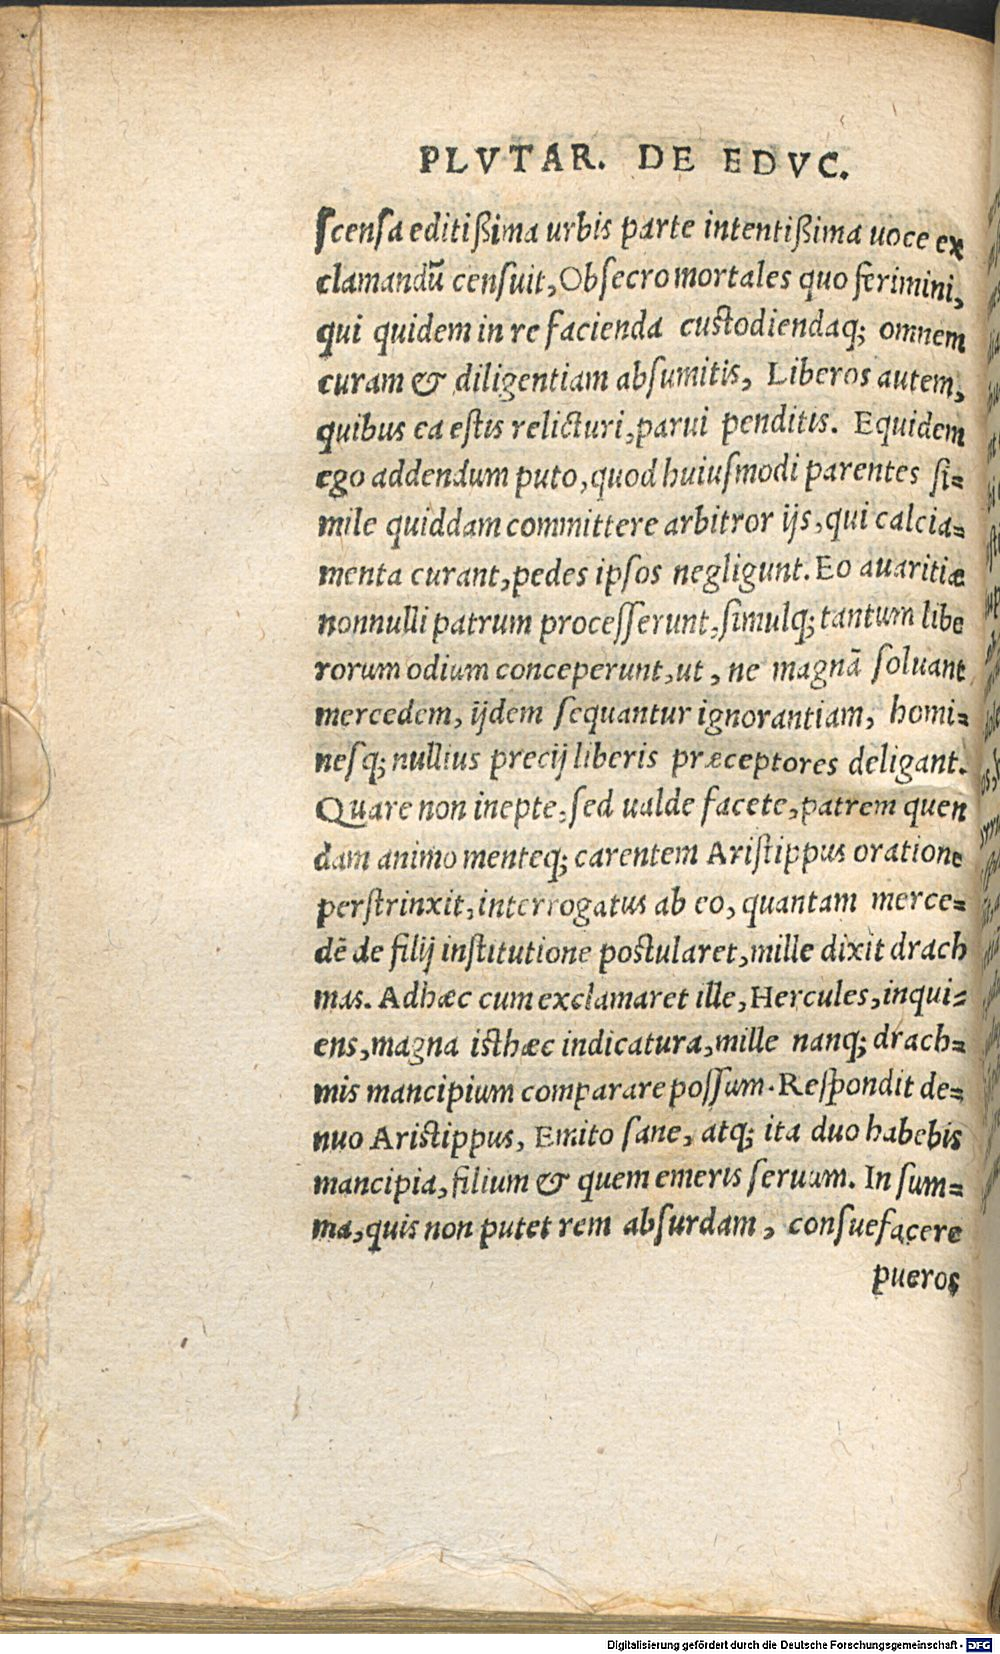 PLVTAR. DE EDVC.
ſcenſa editißima urbis parte intentißima uoce ex
clamandū cenſuit, Obſecro mortales quo ferimini,
qui quidem in re facienda cuſtodiendaq; omnem
curam & diligentiam abſumitis, Liberos autem,
quibus ea eſtis relicturi, parui penditis. Equidem
ego addendum puto, quod huiuſmodi parentes ſi=
mile quiddam committere arbitror ijs, qui calcia=
menta curant, pedes ipſos negligunt. Eo auaritiæ
nonnulli patrum proceſſerunt, ſimulq; tantum libe
rorum odium conceperunt, ut, ne magnā ſoluant
mercedem, ijdem ſequantur ignorantiam, homi=
neſq; nullius precij liberis præceptores deligant.
Quare non inepte, ſed ualde facete, patrem quen
dam animo menteq; carentem Ariſtippus oratione
perſtrinxit, interrogatus ab eo, quantam merce=
dē de filij inſtitutione poſtularet, mille dixit drach
mas. Ad hæc cum exclamaret ille, Hercules, inqui=
ens, magna iſthæc indicatura, mille nanq; drach=
mis mancipium comparare poſſum. Reſpondit de=
nuo Ariſtippus, Emito ſane, atq; ita duo habebis
mancipia, filium & quem emeris ſeruum. In ſum=
ma, quis non putet rem abſurdam, conſuefacere
pueros
Digitalisierung gefördert durch die Deutsche Forschungsgemeinschaft - DFG